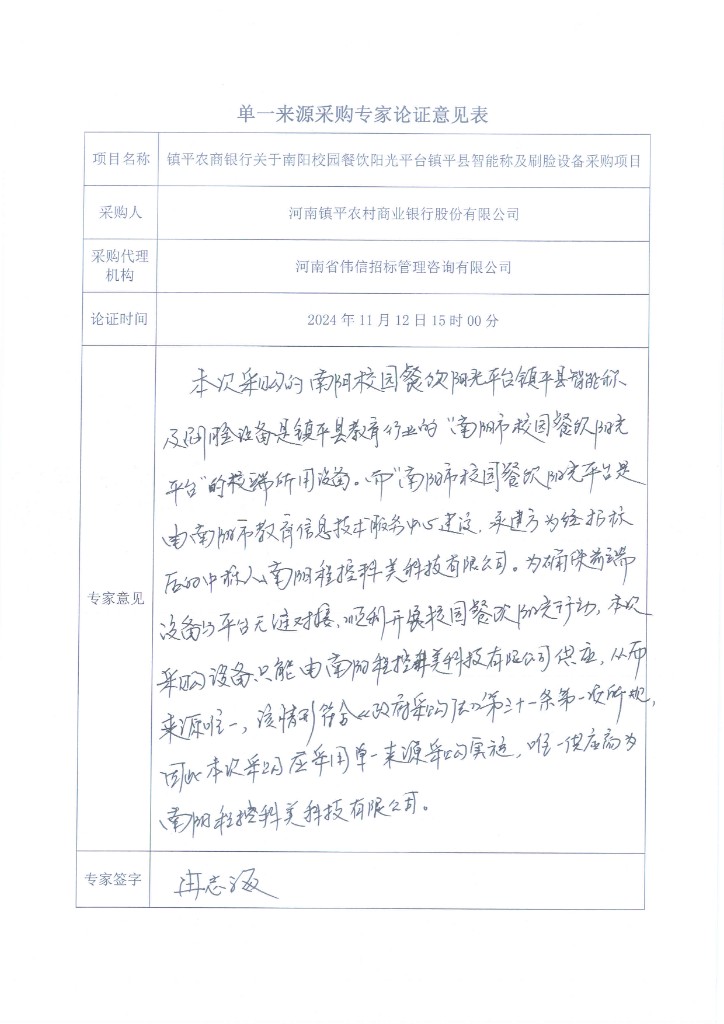 单一来源采购专家论证意见表
项目名称 镇平农商银行关于南阳校园餐饮阳光平台镇平县智能称及刷脸设备采购项目
采购人 河南镇平农村商业银行股份有限公司
采购代理机构 河南省伟信招标管理咨询有限公司
论证时间 2024年11月12日15时00分
专家意见
本次采购的南阳校园餐饮阳光平台镇平县智能称
及刷脸设备是镇平县教育行业的“南阳市校园餐饮阳光
平台”的校端所用设备。而“南阳市校园餐饮阳光平台是
由南阳市教育信息技术服务中心建设，承建方为经招标
后的中标人南阳程控科美科技有限公司。为确保前端
设备与平台无缝对接，顺利开展校园餐饮阳光行动，本次
采购设备只能由南阳程控科美科技有限公司供应，从而
来源唯一，该情形符合《政府采购法》第三十一条第一项所规，
因此本次采购应采用单一来源采购实施，唯一供应商为
南阳程控科美科技有限公司。
专家签字